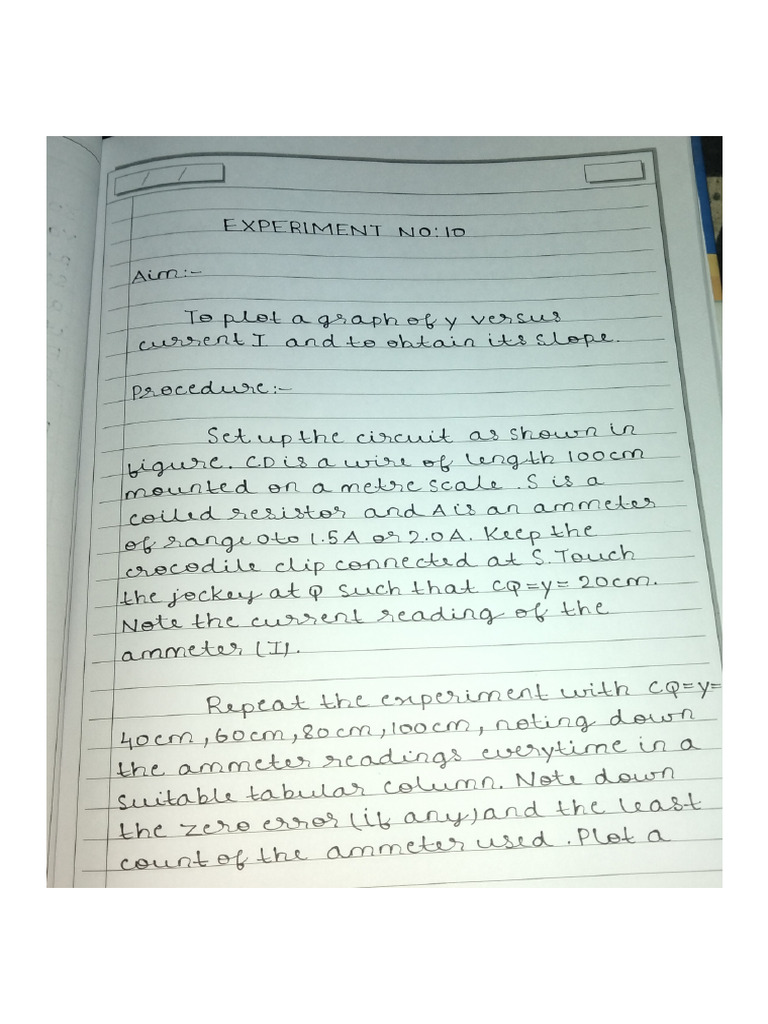 EXPERIMENT NO:10
Aim:-
To plot a graph of y versus
current I and to obtain its slope.
Procedure:-
Set up the circuit as shown in
figure. CD is a wire of length 100cm
mounted on a metre scale. S is a
coiled resistor and A is an ammeter
of range 0 to 1.5A or 2.0A. Keep the
crocodile clip connected at S. Touch
the jockey at Q such that CQ=y= 20cm.
Note the current reading of the
ammeter (I).
Repeat the experiment with CQ=y=
40cm, 60cm, 80cm, 100cm, noting down
the ammeter readings everytime in a
suitable tabular column. Note down
the zero error (if any) and the least
count of the ammeter used. Plot a